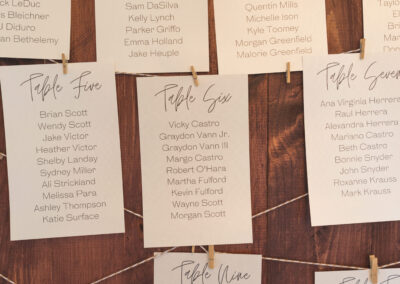 LeDuc
Bleichner
J Diduro
an Bethelemy
Sam DaSilva
Kelly Lynch
Parker Griffo
Emma Holland
Jake Heuple
Quentin Mills
Michelle Ison
Kyle Toomey
Morgan Greenfield
Malorie Greenfield
Table Five
Brian Scott
Wendy Scott
Jake Victor
Heather Victor
Shelby Landay
Sydney Miller
Ali Strickland
Melissa Para
Ashley Thompson
Katie Surface
Table Six
Vicky Castro
Graydon Vann Jr.
Graydon Vann III
Margo Castro
Robert O'Hara
Martha Fulford
Kevin Fulford
Wayne Scott
Morgan Scott
Table Seven
Ana Virginia Herrera
Raul Herrera
Alexandra Herrera
Mariano Castro
Beth Castro
Bonnie Snyder
John Snyder
Roxanne Krauss
Mark Krauss
Table Nine
Table